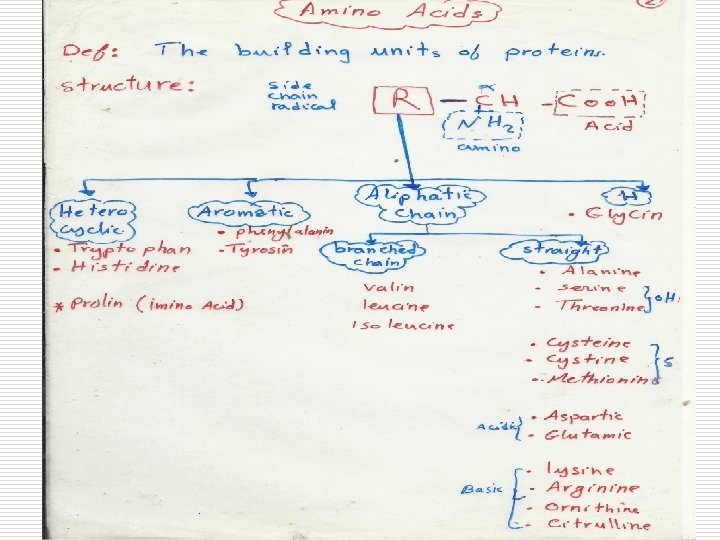 Amino Acids
Def: The building units of proteins.
structure:
side chain radical
R - CH - COOH
α
NH2
amino
Acid
Hetero cyclic
• Tryptophan
- Histidine
* Prolin (imino Acid)
Aromatic
• phenylalanin
- Tyrosin
Aliphatic Chain
branched chain
valin
leucine
Iso leucine
straight
• Alanine
- serine
- Threonine
OH
• Cysteine
• Cystine
- Methionine
S
Acidic
• Aspartic
- Glutamic
Basic
- lysine
- Arginine
- Ornithine
- Citrulline
H
• Glycin